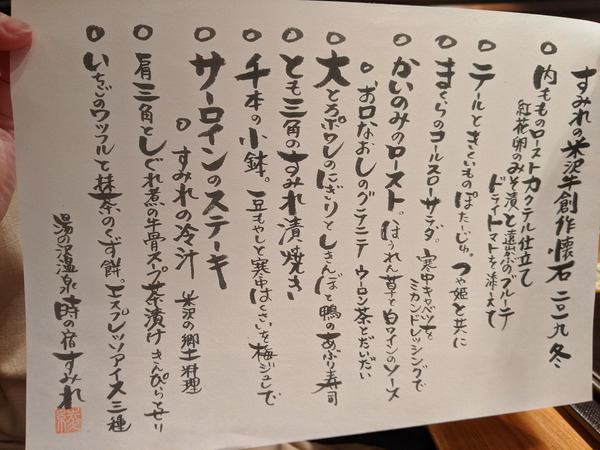 すみれの米沢牛創作懐石 二〇一九 冬
○ 内もものロースト カクテル仕立て
紅花卵のみそ漬と遠岩のブルーテ
ドライトマトを添えて
○ テールときくいものぽたーじゅ。つや姫と共に
○ まくらのコールスローサラダ。寒中キャベツを
ミカンドレッシングで
○ かいのみのロースト。ほうれん草と白ワインのソース
○ お口なおしのグラニテ ウーロン茶とだいだい
○ 大とろポワレのにぎりとしきんぼと鴨のあぶり寿司
○ とも三角のすみれ漬焼き
○ 千本の小鉢。豆もやしと寒中はくさいを梅ジュレで
○ サーロインのステーキ
○ すみれの冷汁 米沢の郷土料理
○ 肩三角としぐれ煮の牛骨スープ茶漬け きんぴらとせり
○ いちごのワッフルと抹茶のくず餅。エスプレッソアイス三種
湯の沢温泉 時の宿 すみれ